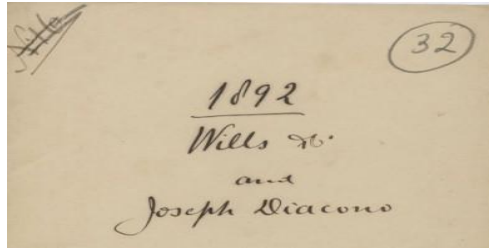 32
1892
Wills &c.
and
Joseph Diacono